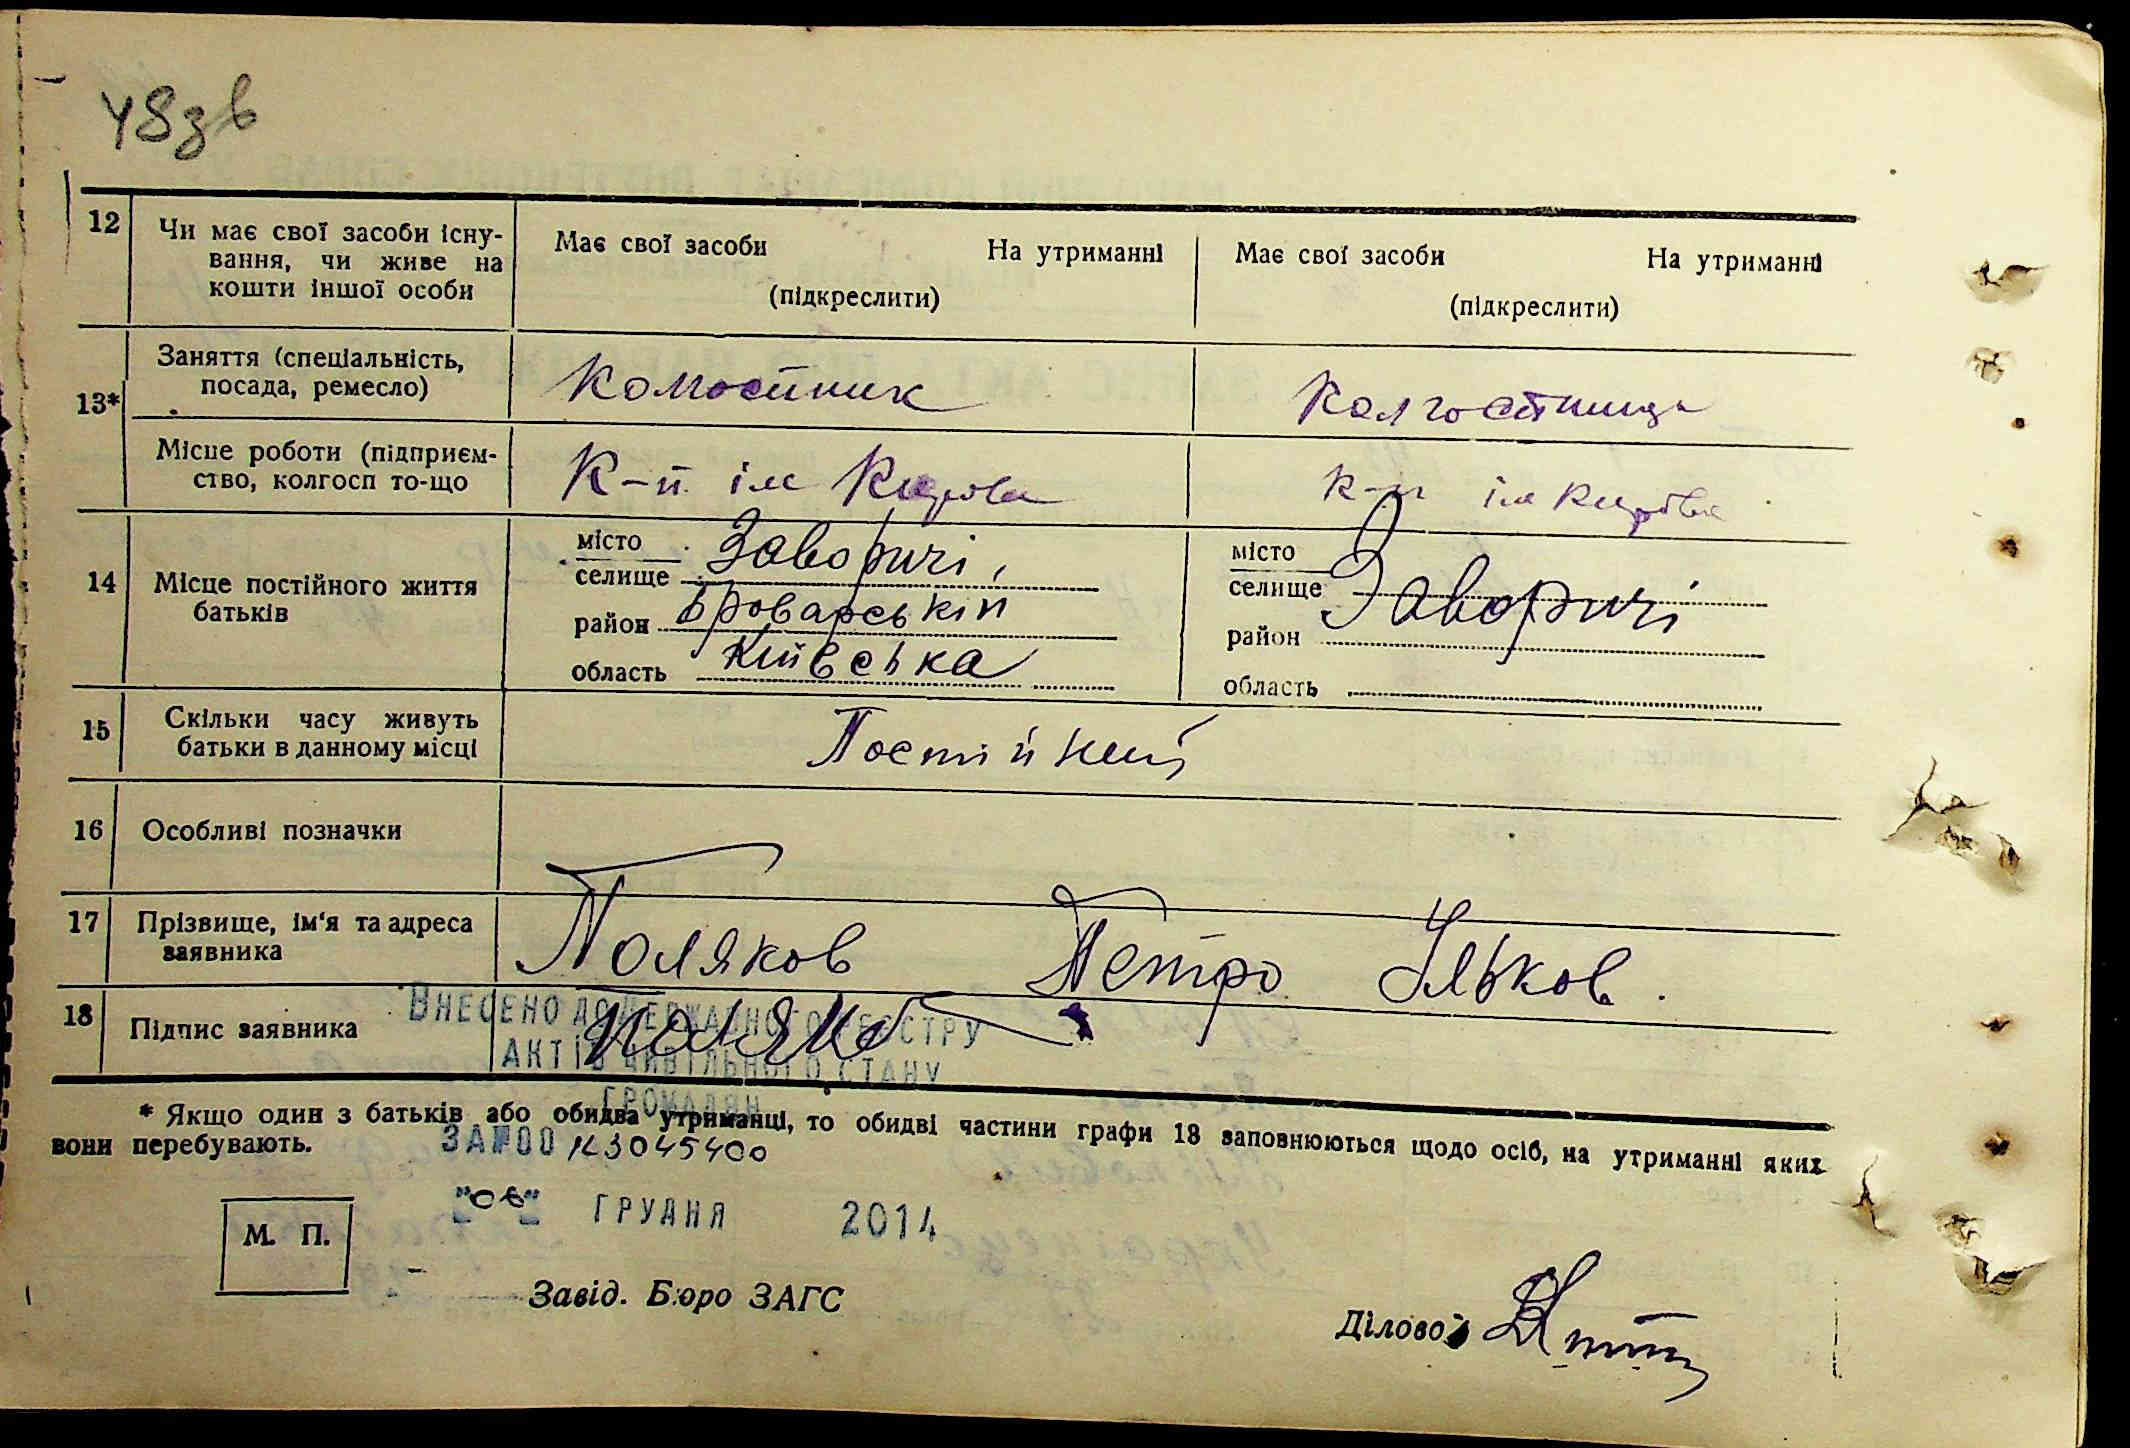 48зв
12 Чи має свої засоби існу-
вання, чи живе на
кошти іншої особи
Має свої засоби На утриманні
(підкреслити)
Має свої засоби На утриманні
(підкреслити)
13* Заняття (спеціальність,
посада, ремесло)
Колгостник
Колгостница
Місце роботи (підприєм-
ство, колгосп то-що
К-п ім Кирова
к-п ім Кирова
14 Місце постійного життя
батьків
місто
селище Заворичі,
район Броварський
область Київська
місто
селище Заворичі
район
область
15 Скільки часу живуть
батьки в данному місці
Постійний
16 Особливі позначки
17 Прізвище, ім'я та адреса
заявника
Поляков Петро
18 Підпис заявника
ВНЕСЕНО ДО ДЕРЖАВНОГО РЕЄСТРУ
АКТІВ ЦИВІЛЬНОГО СТАНУ
ГРОМАДЯН
* Якщо один з батьків або обидва утриманці, то обидві частини графи 18 заповнюються щодо осіб, на утриманні яких
вони перебувають.
ЗА №00123045400
ГРУДНЯ 2014
М. П.
Завід. Бюро ЗАГС
Діловод